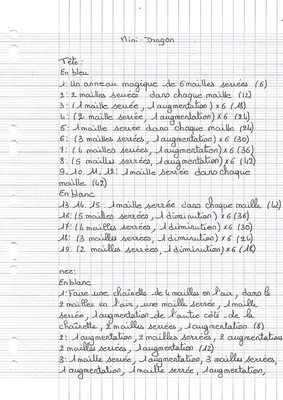 Mini-Dragon
Tête :
En bleu
1: Un anneau magique de 6 mailles serrées (6)
2: 2 mailles serrées dans chaque maille (12)
3: (1 maille serrée, 1 augmentation) x 6 (18)
4: (2 maille serrée, 1 augmentation) x 6 (24)
5: 1 maille serrée dans chaque maille (24)
6: (3 mailles serrées, 1 augmentation) x 6 (30)
7: (4 mailles serrées, 1 augmentation) x 6 (36)
8: (5 mailles serrées, 1 augmentation) x 6 (42)
9. 10. 11. 12: 1 maille serrée dans chaque
maille (42)
En blanc
13. 14. 15: 1 maille serrée dans chaque maille (42)
16: (5 mailles serrées, 1 diminution) x 6 (36)
17: (4 mailles serrées, 1 diminution) x 6 (30)
18: (3 mailles serrées, 1 diminution) x 6 (24)
19: (2 mailles serrées, 1 diminution) x 6 (18)
nez:
En blanc
1: Faire une chaînette de 4 mailles en l'air, dans la
2 mailles en l'air, une maille serrée, 1 maille
serrée, 1 augmentation de l'autre côté de la
chaînette, 2 mailles serrées, 1 augmentation (8)
2: 1 augmentation, 2 mailles serrées, 2 augmentations
2 mailles serrées, 1 augmentation (12)
3: 1 maille serrée, 1 augmentation, 3 mailles serrées,
1 augmentation, 1 maille serrée, 1 augmentation,